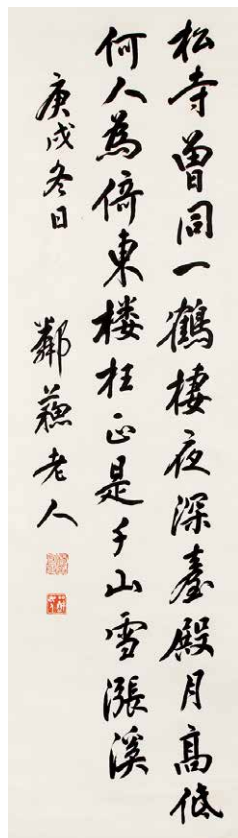 松寺曾同一鶴棲夜深臺殿月高低
何人為倚東樓柱正是千山雪漲溪
庚戌冬日
鄰蘓老人